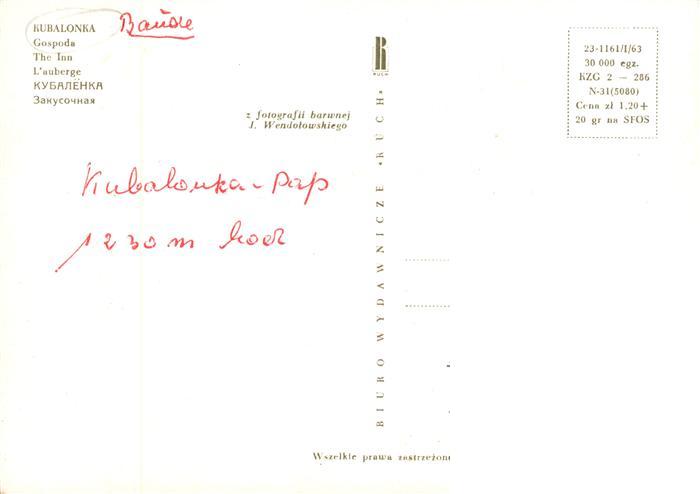 KUBALONKA Baude
Gospoda
The Inn
L'auberge
КУБАЛЁНКА
Закусочная
z fotografii barwnej
J. Wendołowskiego
Kubalonka - Pap
1230 m hoch
BIURO WYDAWNICZE «RUCH»
RUCH
23-1161/I/63
30 000 egz.
KZG 2 — 286
N-31(5080)
Cena zł 1,20+
20 gr na SFOS
Wszelkie prawa zastrzeżone